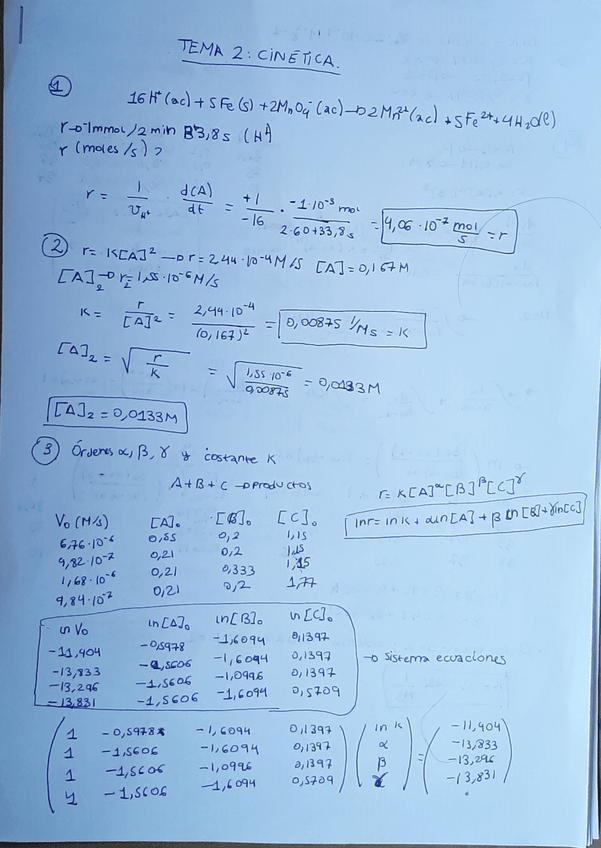 TEMA 2: CINÉTICA.
1
16H⁺(ac) + 5Fe(s) + 2MnO₄⁻(ac) → 2Mn²⁺(ac) + 5Fe²⁺ + 4H₂O(l)
r → 1mmol/2 min 33,8s (H⁺)
r (moles/s)?
r = 1/υH⁺ · d(A)/dt = +1/-16 · -1·10⁻³ mol/2·60+33,8s = 4,06·10⁻⁷ mol/s = r
2 r = K[A]² → r = 2,44·10⁻⁴ M/s [A] = 0,167M
[A]₂ → r₂ = 1,55·10⁻⁶ M/s
K = r/[A]² = 2,44·10⁻⁴/(0,167)² = 0,00875 1/Ms = K
[A]₂ = √(r/K) = √(1,55·10⁻⁶/0,00875) = 0,0133M
[A]₂ = 0,0133M
3 Órdenes α, β, γ y costante K
A+B+C → productos
r = K[A]^α[B]^β[C]^γ
lnr = lnK + αln[A] + βln[B] + γln[C]
V₀ (M/s) [A]₀ [B]₀ [C]₀
6,76·10⁻⁶ 0,55 0,2 1,15
9,82·10⁻⁷ 0,21 0,2 1,15
1,68·10⁻⁶ 0,21 0,333 1,15
9,84·10⁻⁷ 0,21 0,2 1,77
ln V₀ ln[A]₀ ln[B]₀ ln[C]₀
-11,404 -0,5978 -1,6094 0,1397
-13,833 -1,5606 -1,6094 0,1397 → Sistema ecuaciones
-13,296 -1,5606 -1,0996 0,1397
-13,831 -1,5606 -1,6094 0,5709
1 -0,5978 -1,6094 0,1397 ln K -11,404
1 -1,5606 -1,6094 0,1397 α = -13,833
1 -1,5606 -1,0996 0,1397 β -13,296
1 -1,5606 -1,6094 0,5709 γ -13,831